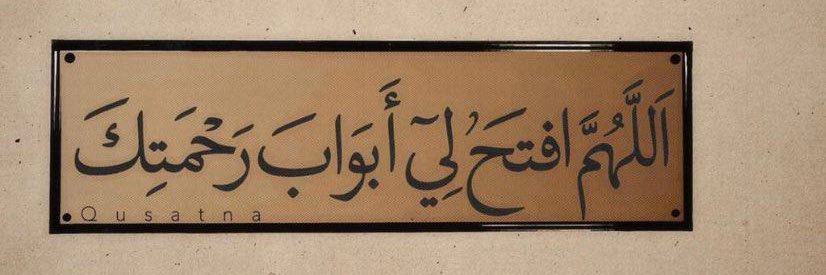 اَللَّهُمَّ افتَحَ لِي أَبوَابَ رَحْمَتِكَ
Qusatna